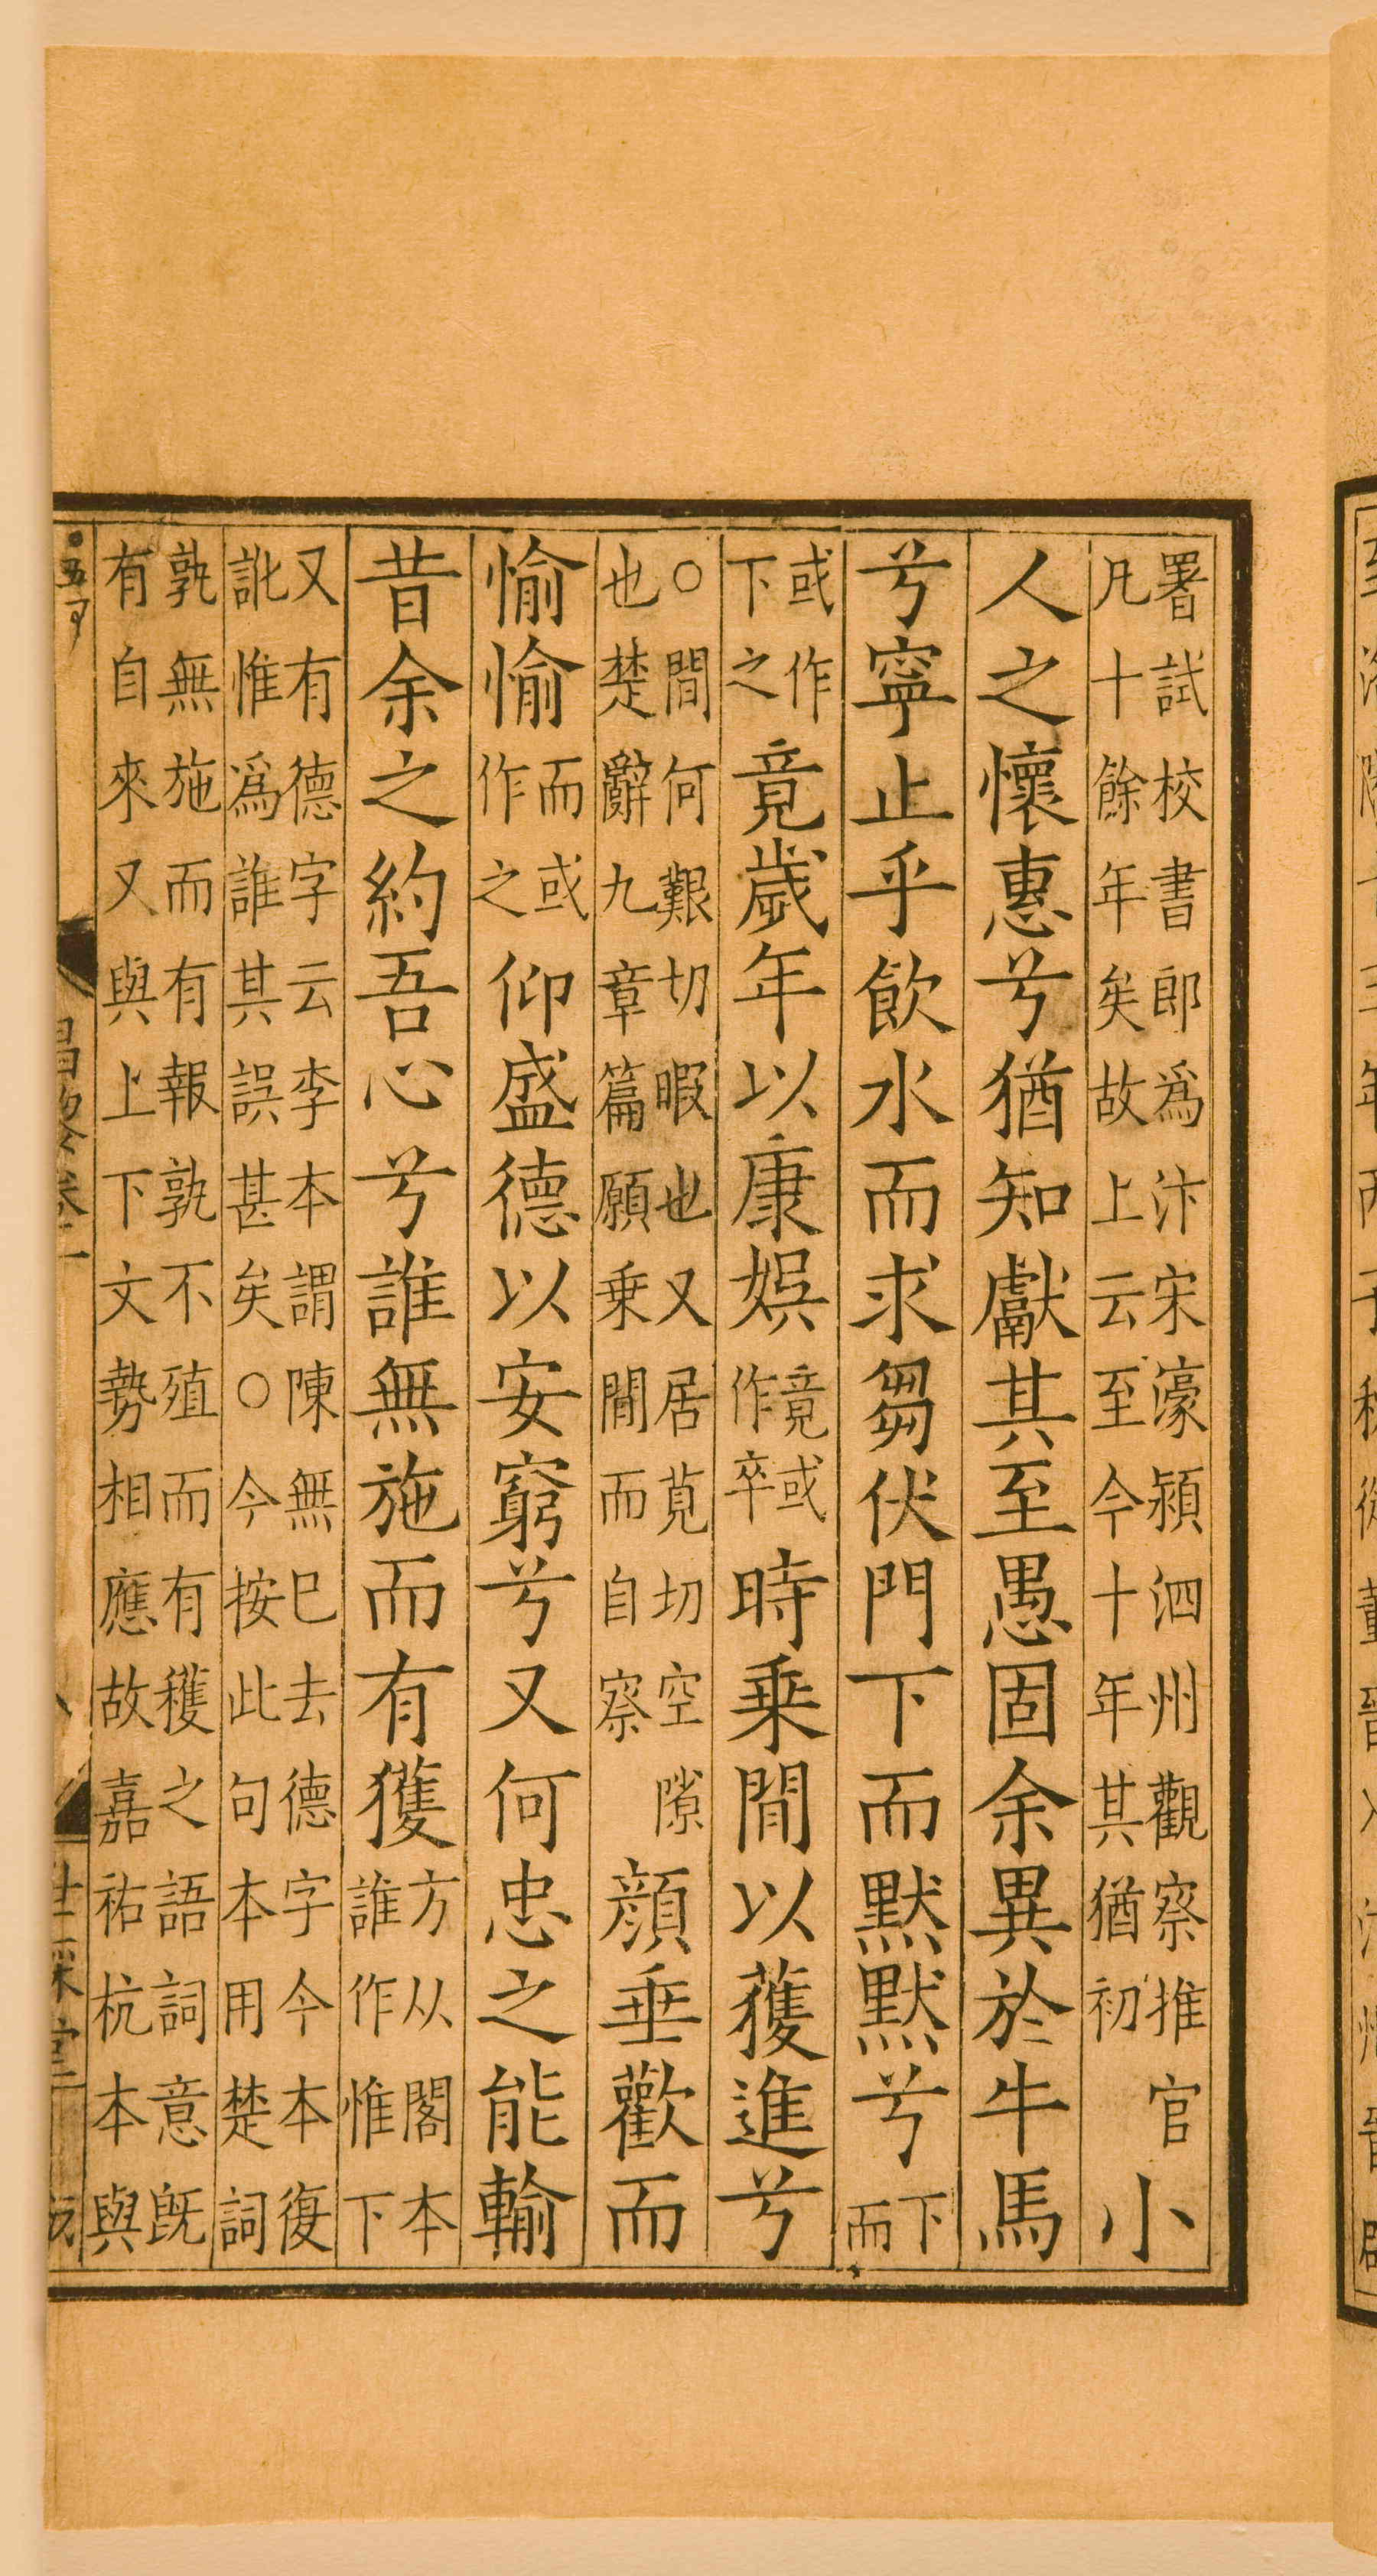 署試校書郎爲汴宋濠潁泗州觀察推官
凡十餘年矣故上云至今十年其猶初
小
人之懷惠兮猶知獻其至愚固余異於牛馬
兮寧止乎飲水而求芻伏門下而默默兮
下
而
或作
下之
竟歲年以康娛
竟或
作卒
時乘閒以獲進兮
○閒何艱切暇也又居莧切空隙
也楚辭九章篇願乗閒而自察
顔垂歡而
愉愉
而或
作之
仰盛德以安窮兮又何忠之能輸
昔余之約吾心兮誰無施而有獲
方从閣本
誰作惟下
又有德字云李本謂陳無巳去德字今本復
訛惟爲誰其誤甚矣○今按此句本用楚詞
孰無施而有報孰不殖而有穫之語詞意旣
有自來又與上下文勢相應故嘉祐杭本與